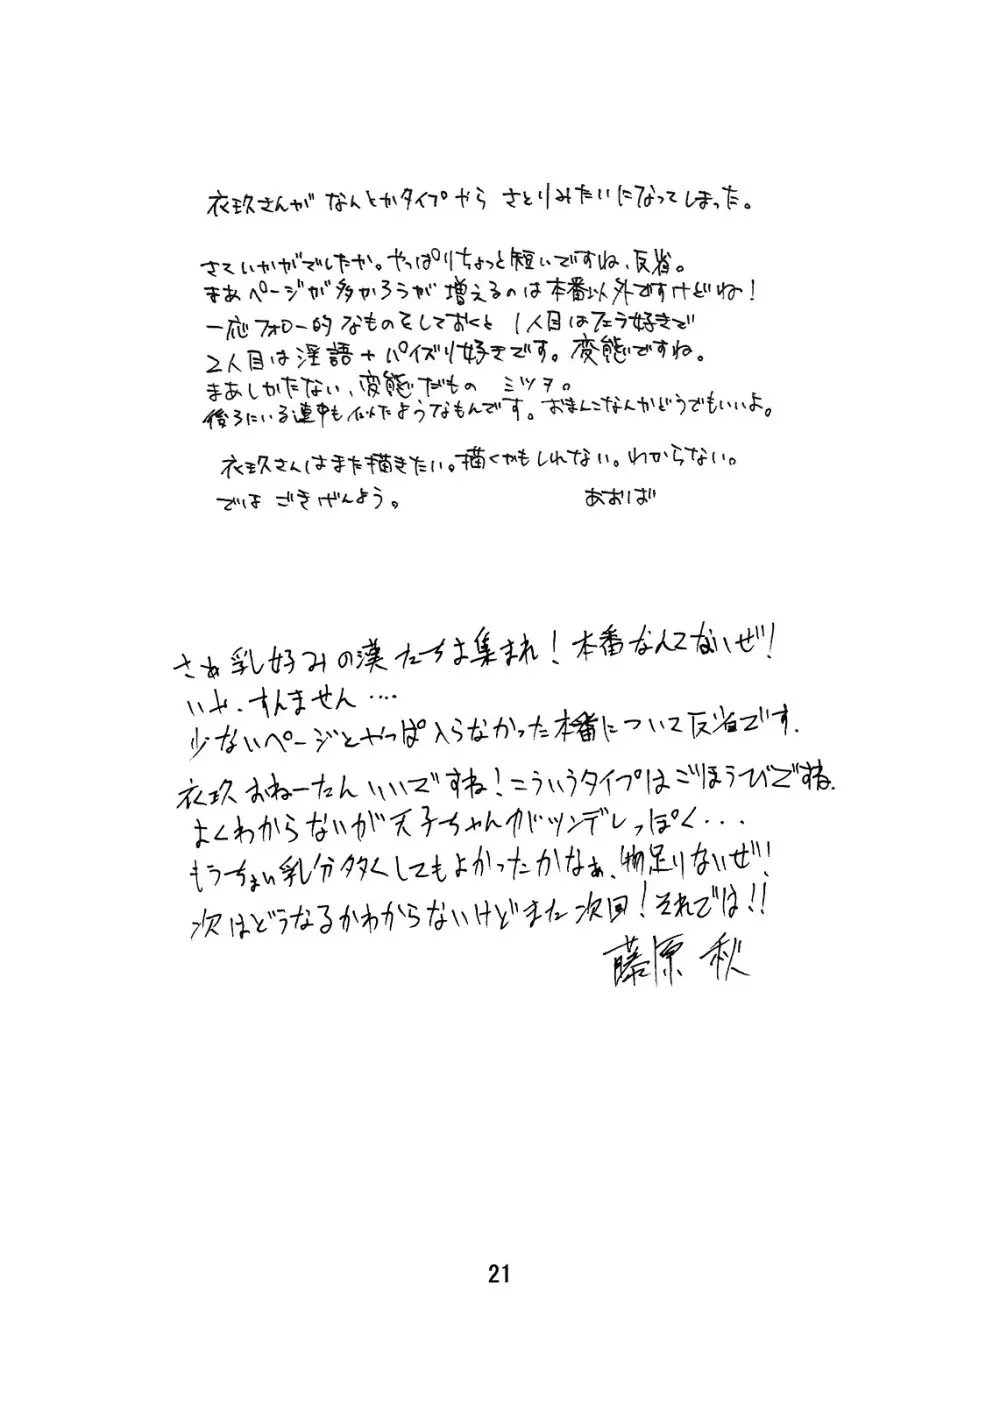 衣玖さんが なんとかタイプやら さとりみたいになってしまった。
さていかがでしたか。やっぱりちょっと短いですね、反省。
まあページが多かろうが 増えるのは本番以外ですけどね!
一応フォロー的なものをしておくと 1人目はフェラ好きで
2人目は淫語+パイズリ好きです。変態ですね。
まあしかたない、変態だもの ミツヲ。
後ろにいる連中も似たようなもんです。おまんこなんかどうでもいいよ。
衣玖さんはまた描きたい。描くかもしれない。わからない。
ではごきげんよう。 あおば
さぁ乳好みの漢たちよ集まれ!本番なんてないぜ!
いや、すんません‥‥
少ないページとやっぱ入らなかった本番について反省です.
衣玖おねーたんいいですね!こういうタイプはごほうびですね.
よくわからないが天子ちゃんがツンデレっぽく・・・
もうちょい乳分多くしてもよかったかなぁ、物足りないぜ!
次はどうなるかわからないけどまた次回!それでは!!
藤原 秋
21